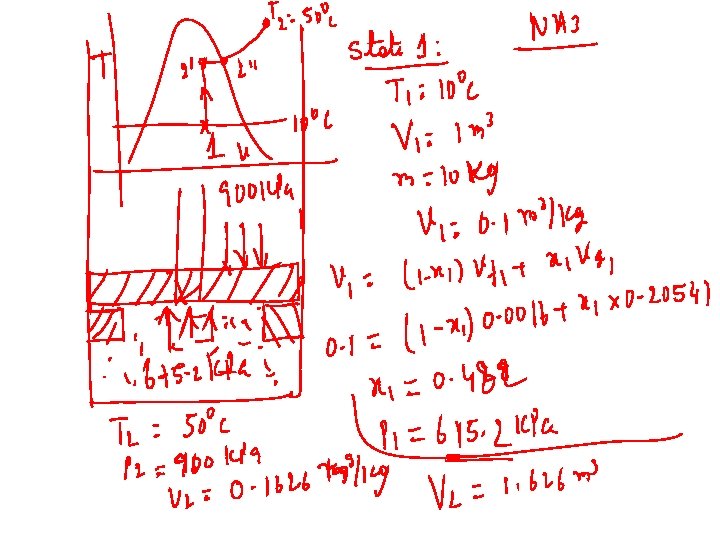 T
T2 = 50°C
2'
2"
10°C
1
v
900 kPa
615.2 kPa
T2 = 50°C
P2 = 900 kPa
V2 = 0.1626 m3/kg
NH3
State 1:
T1 = 10°C
V1 = 1 m3
m = 10 kg
V1 = 0.1 m3/kg
V1 = (1-x1) Vf1 + x1 Vg1
0.1 = (1-x1) 0.0016 + x1 × 0.20541
x1 = 0.482
P1 = 615.2 kPa
V2 = 1.626 m3